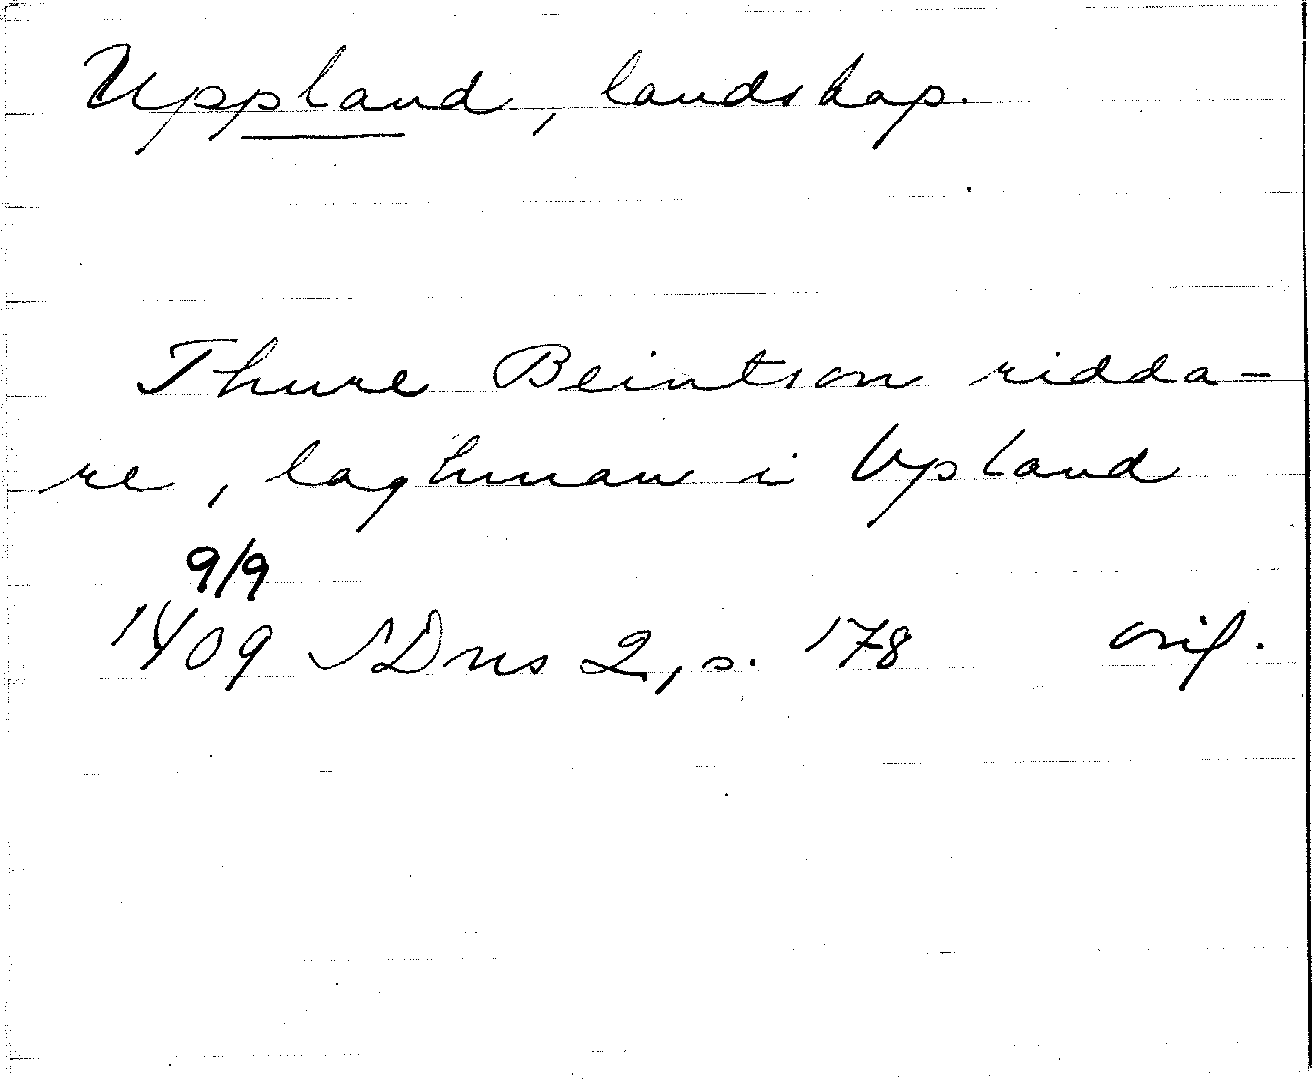 Uppland, landskap.
Thure Beintson ridda-
re, laghman i Upland
9/9
1409 SDns 2, s. 178 orig.